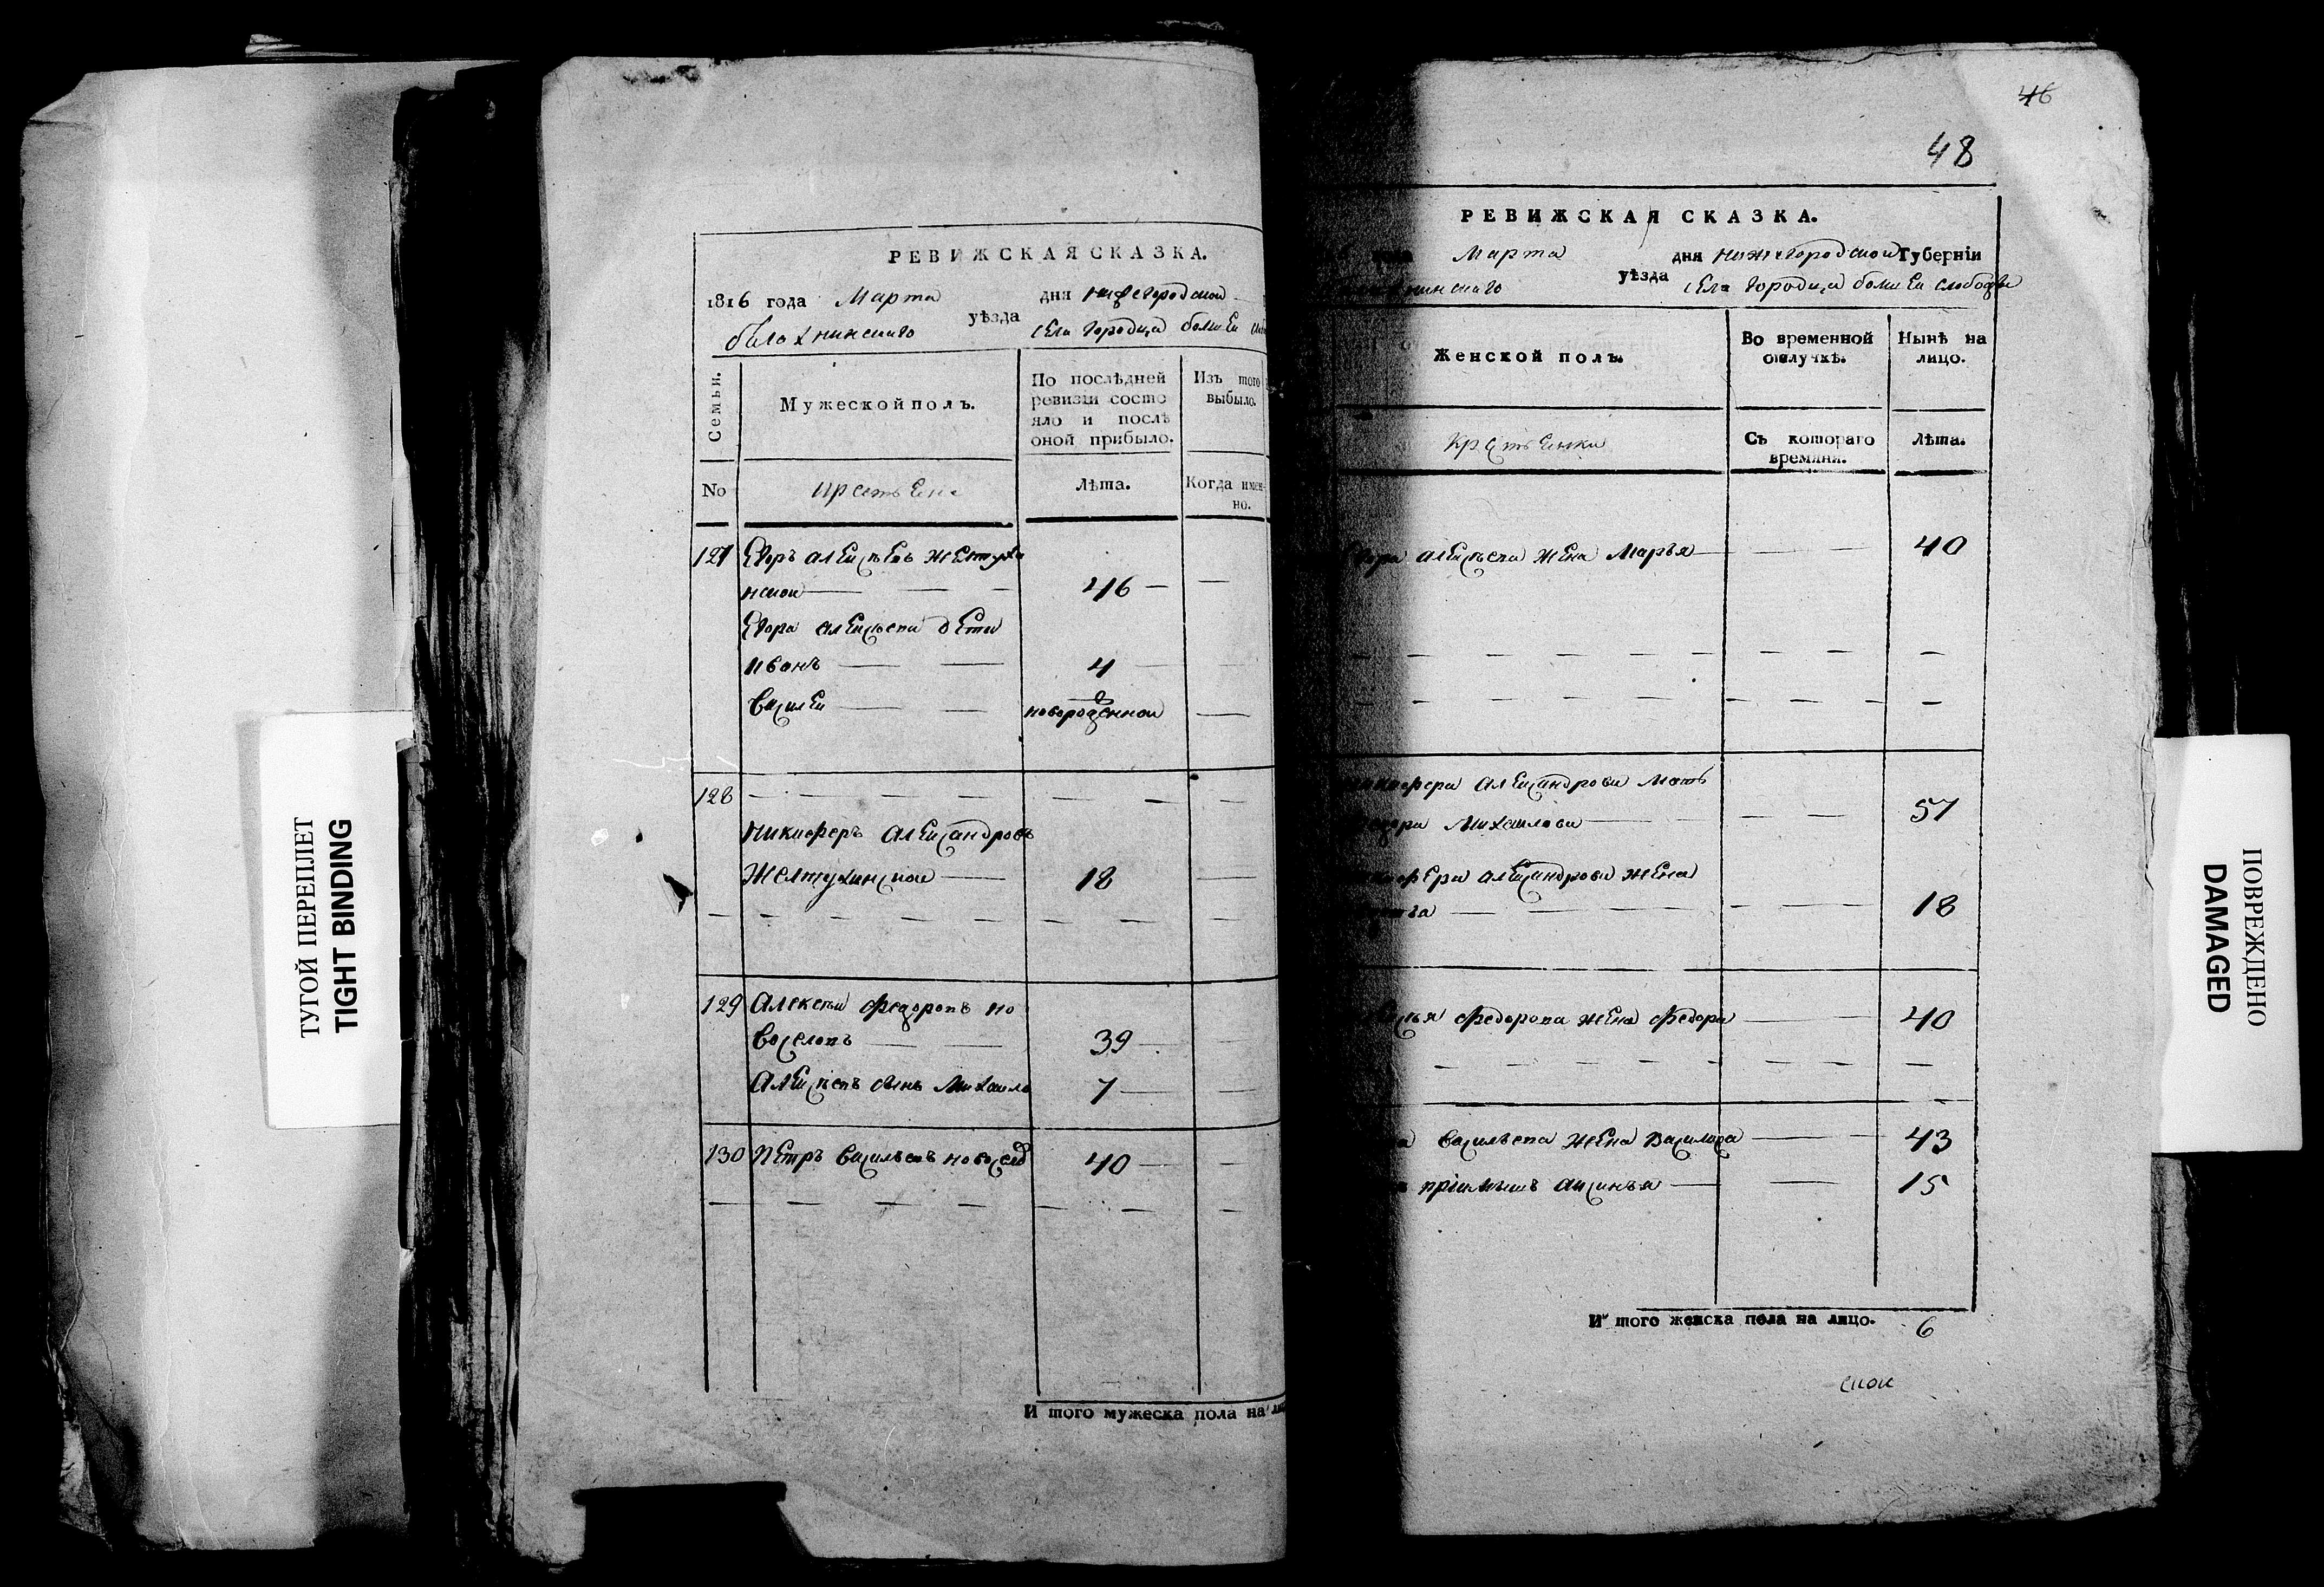 ТУГОЙ ПЕРЕПЛЕТ
TIGHT BINDING
РЕВИЖСКАЯ СКАЗКА.
1816 года Марта дня
уѣзда села городца
Семьи.
Мужеской полъ.
По послѣдней
ревизіи состо
яло и послѣ
оной прибыло.
Изъ того
выбыло.
No
Лѣта.
Когда имен-
но.
127 Егоръ алексѣевъ желтухи
нской — 46 —
Егора алексѣева дети
иванъ — 4
василей — новорожденной —
128
никифоръ александровъ
желтухинской — 18 —
129 Алексѣй федоровъ но
воселовъ — 39 —
алексѣевъ сынъ михаило 7 —
130 петръ васильевъ новосел 40 —
И того мужеска пола на
46
48
РЕВИЖСКАЯ СКАЗКА.
Марта дня нижегородской Губерніи
уѣзда села городца
Женской полъ.
Во временной
отлучкѣ.
Нынѣ на
лицо.
крестьянки
Съ котораго
времяни.
Лѣта.
алексѣева жена марья — 40
александрова мать
михаилова — 57
александрова жена
18
федорова жена федора — 40
васильева жена василиса — 43
пріимышъ аксинья — 15
И того женска пола на лицо. 6
ской
ПОВРЕЖДЕНО
DAMAGED